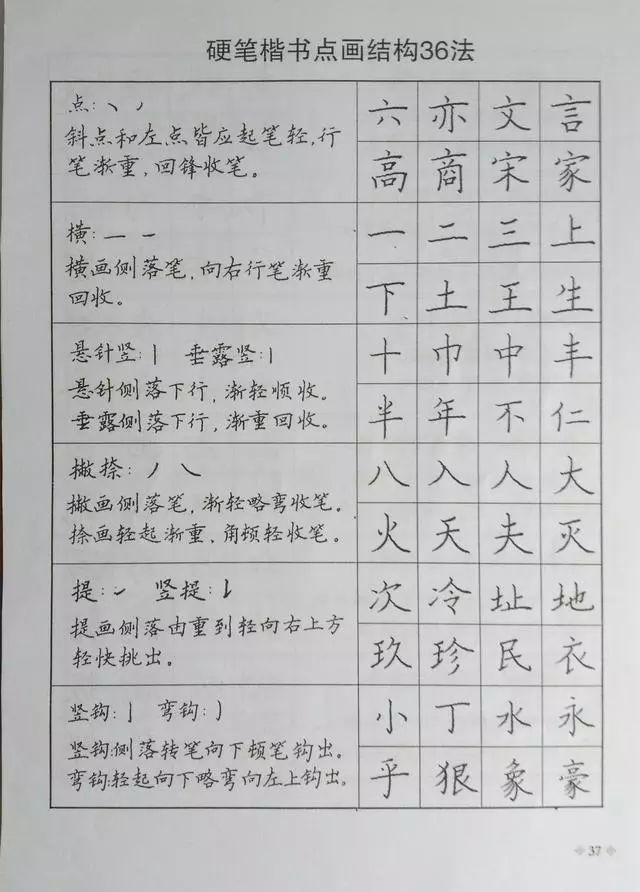 硬笔楷书点画结构36法
点: 丶 ノ
六 亦 文 言
斜点和左点皆应起笔轻,行
笔渐重,回锋收笔。
高 商 宋 家
横: 一 一
一 二 三 上
横画侧落笔,向右行笔渐重
回收。
下 土 王 生
悬针竖:丨 垂露竖:丨
十 巾 中 丰
悬针侧落下行,渐轻顺收。
垂露侧落下行,渐重回收。
半 年 不 仁
撇捺: 丿 ㇏
八 入 人 大
撇画侧落笔,渐轻略弯收笔。
捺画轻起渐重,角顿轻收笔。
火 天 夫 灭
提: ㇀ 竖提: 𠄌
次 冷 址 地
提画侧落由重到轻向右上方
轻快挑出。
玖 珍 民 衣
竖钩: 亅 弯钩: ㇁
小 丁 水 永
竖钩:侧落转笔向下顿笔钩出。
弯钩:轻起向下略弯向左上钩出。
乎 狠 象 豪
37